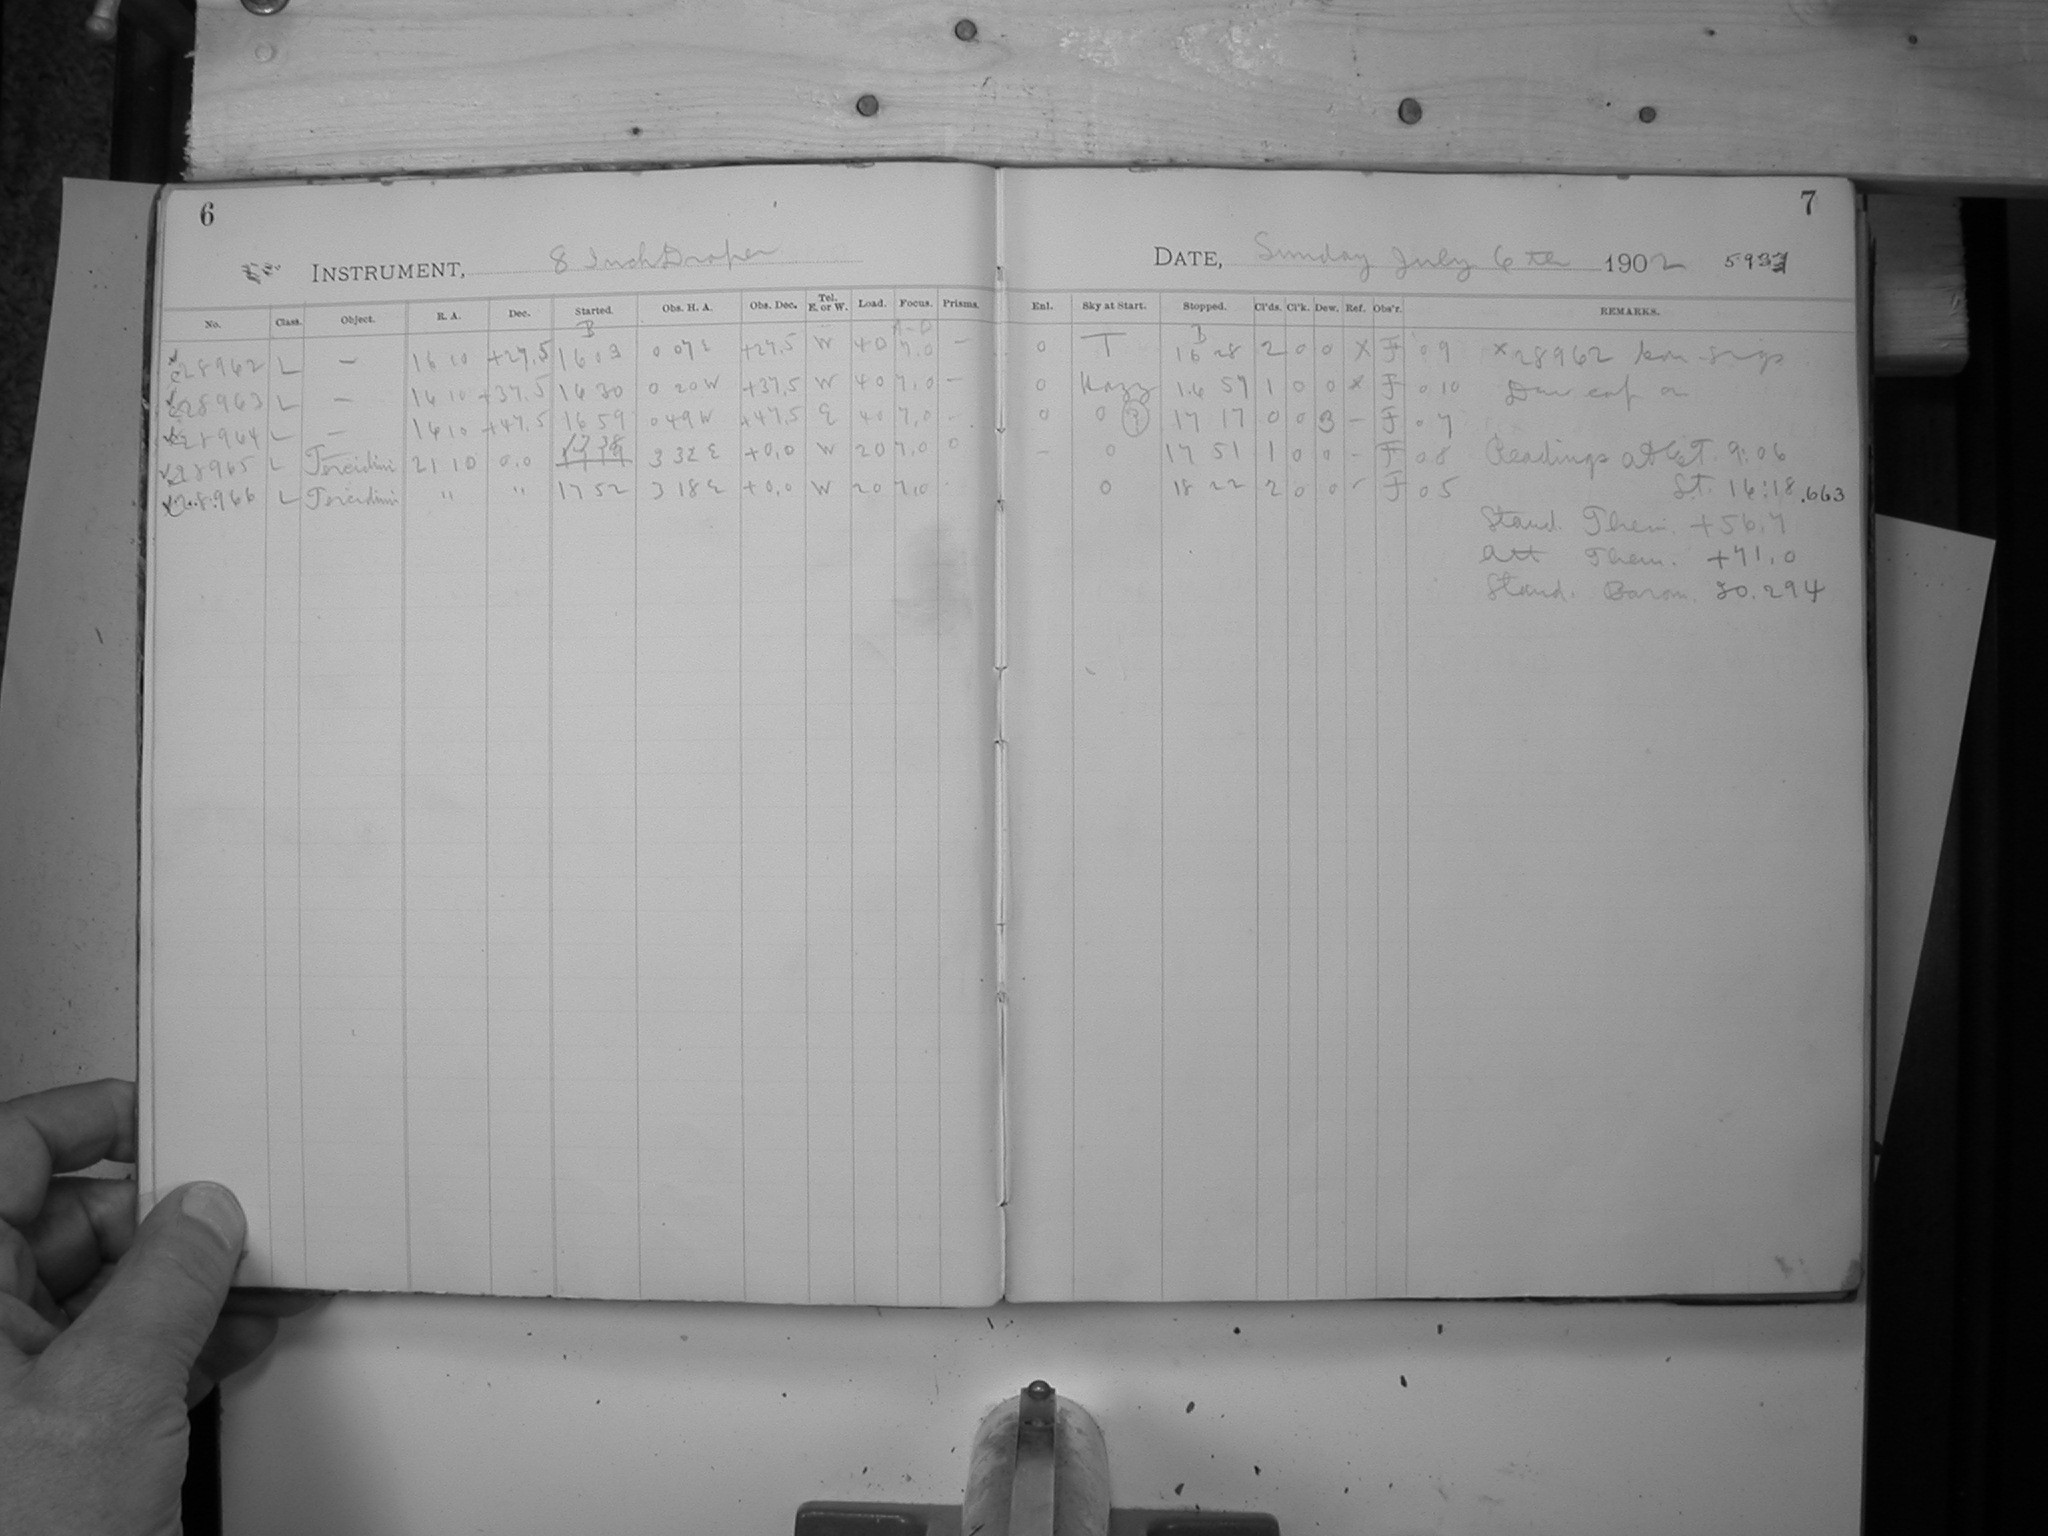 6
7
INSTRUMENT, 8 Inch Draper
DATE, Sunday July 6 th 1902 5937
No. Class. Object. R. A. Dec. Started. Obs. H. A. Obs. Dec. Tel. E. or W. Load. Focus. Prisms. Enl. Sky at Start. Stopped. Cl'ds. Cl'k. Dew. Ref. Obs'r. REMARKS.
28962 L — 16 10 +27,5 16 03 0 07 E +27,5 W 40 7,0 — 0 T 16 28 2 0 0 X F 09 x 28962
28963 L — 16 10 +37,5 16 30 0 20 W +37,5 W 40 7,0 — 0 Hazy 16 57 1 0 0 x F 0 10 Dew cap on
28964 L — 16 10 +47,5 16 59 0 49 W +47,5 E 40 7,0 - 0 0 ? 17 17 0 0 3 - F 0 7
28965 L 21 10 0,0 17 38 3 32 E +0,0 W 20 7,0 0 - 0 17 51 1 0 0 - F 08 Readings at 9:06
28966 L " " 17 52 3 18 E +0,0 W 20 7,0 0 18 22 2 0 0 - F 05 St. 16:18 .663
Stand. Ther. +56,7
Att Ther. +71,0
Stand. Barom. 30.294